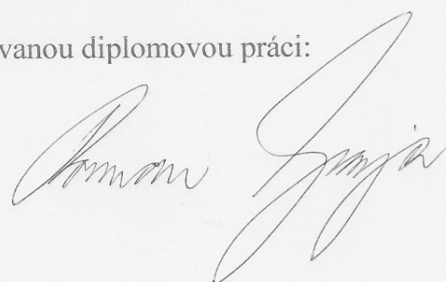 vanou diplomovou práci:
Roman